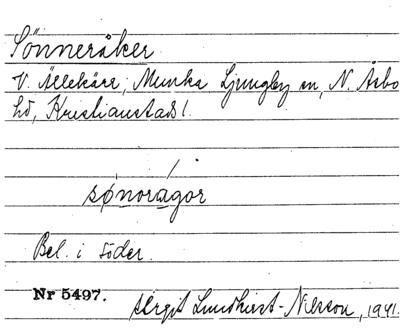 Sönneråker
V. Ällekärr, Munka Ljungby sn, N. Åsbo
hd, Kristianstads l.
sønorågor
Bel. i söder.
Nr 5497.
Birgit Lundkvist-Nilsson, 1941.